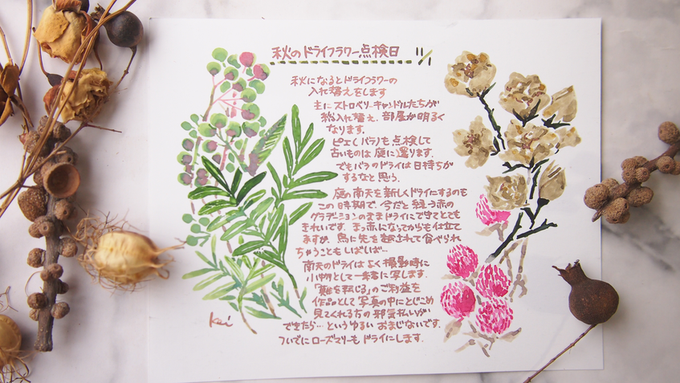 秋のドライフラワー点検日 11/1
秋になるとドライフラワーの
入れ替えをします
主にストロベリーキャンドルたちが
総入れ替え。部屋が明るく
なります。
ピエ〈バラ〉も点検して
古いものは庭に還ります。
でもバラのドライは日持ちが
するなと思う。
庭の南天を新しくドライにするのも
この時期で、今だと緑→赤の
グラデーションのままドライにできてとても
きれいです。まっ赤になってからも仕立て
ますが、鳥に先を越されて食べられ
ちゃうこともしばしば…
南天のドライはよく撮影時に
小物として一緒に写します。
「難を転じる」のご利益を
作品として写真の中にとじこめ
見てくれる方の邪気払いが
できたら…というゆるいおまじないです。
ついでにローズマリーもドライにします。
Kei